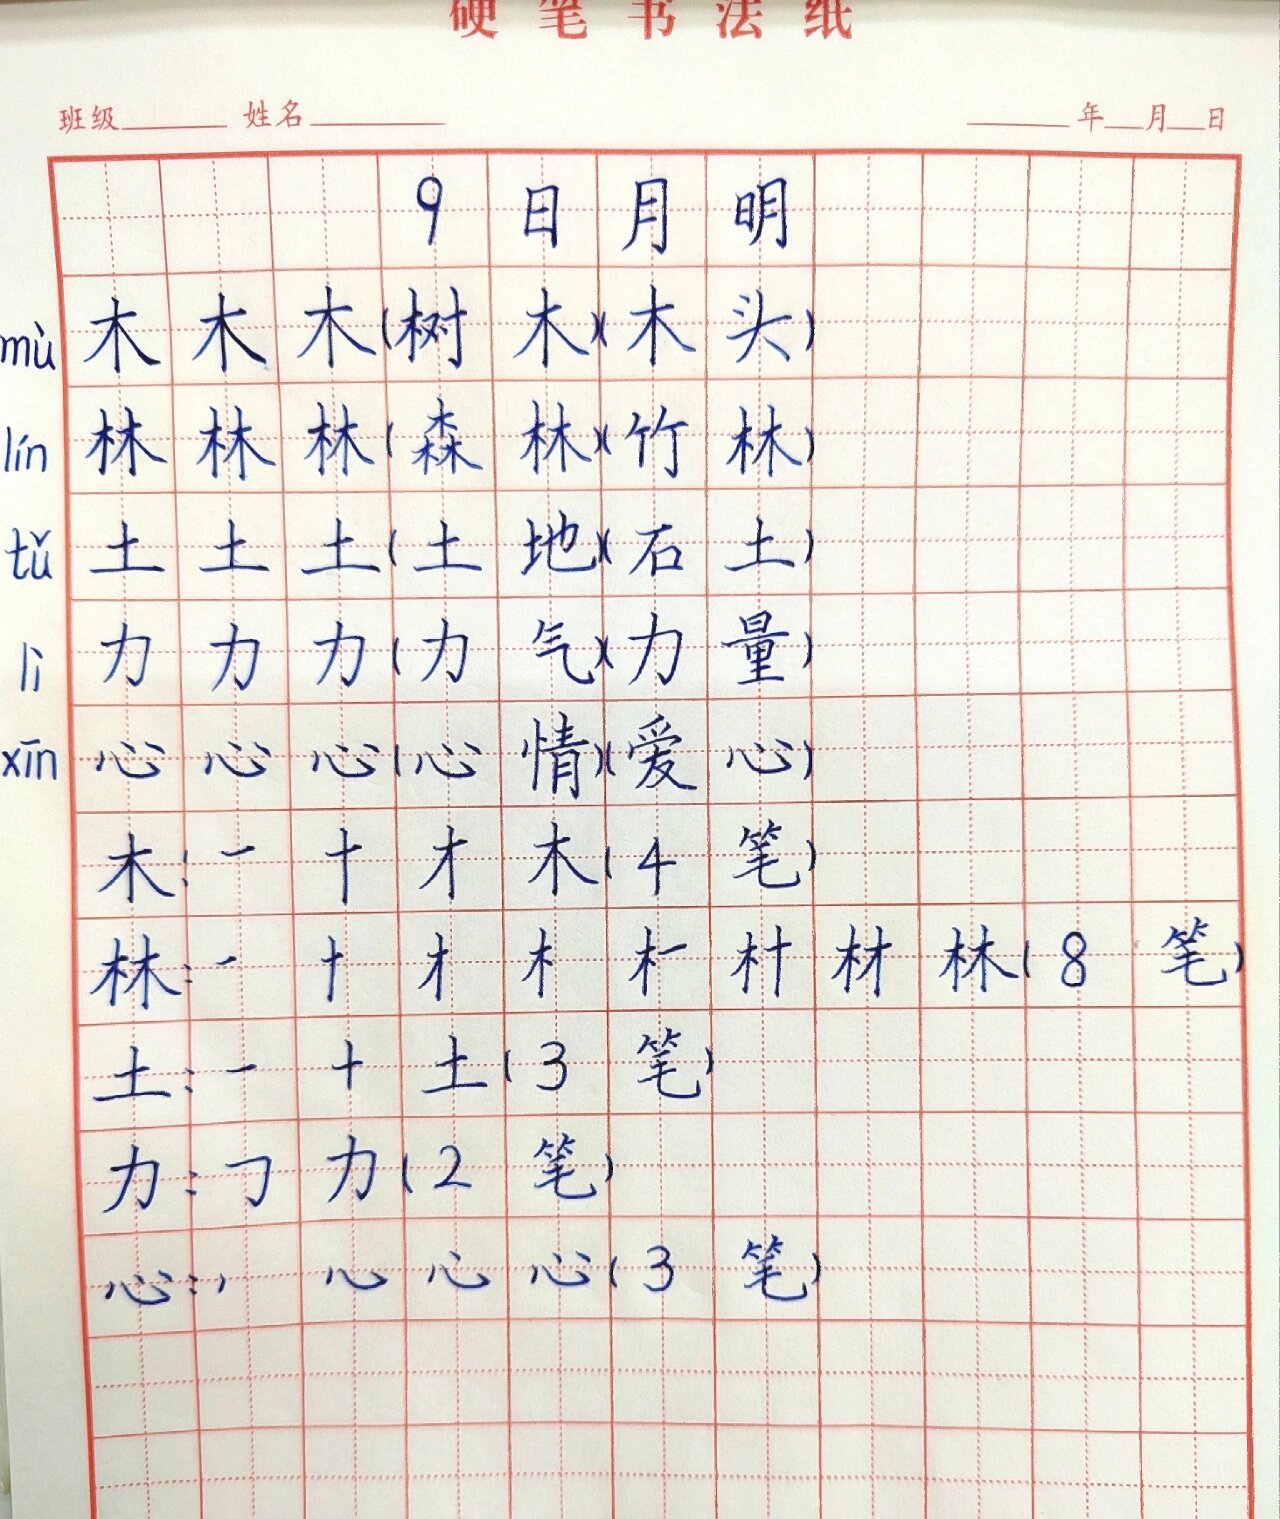 硬笔书法纸
班级 姓名 年 月 日
9 日月明
mù 木 木 木(树木)(木头)
lín 林 林 林(森林)(竹林)
tǔ 土 土 土(土地)(石土)
lì 力 力 力(力气)(力量)
xīn 心 心 心(心情)(爱心)
木: 一 十 才 木(4笔)
林: 一 十 才 木 林(8笔)
土: 一 十 土(3笔)
力: ㇆ 力(2笔)
心: 丶 心(3笔)